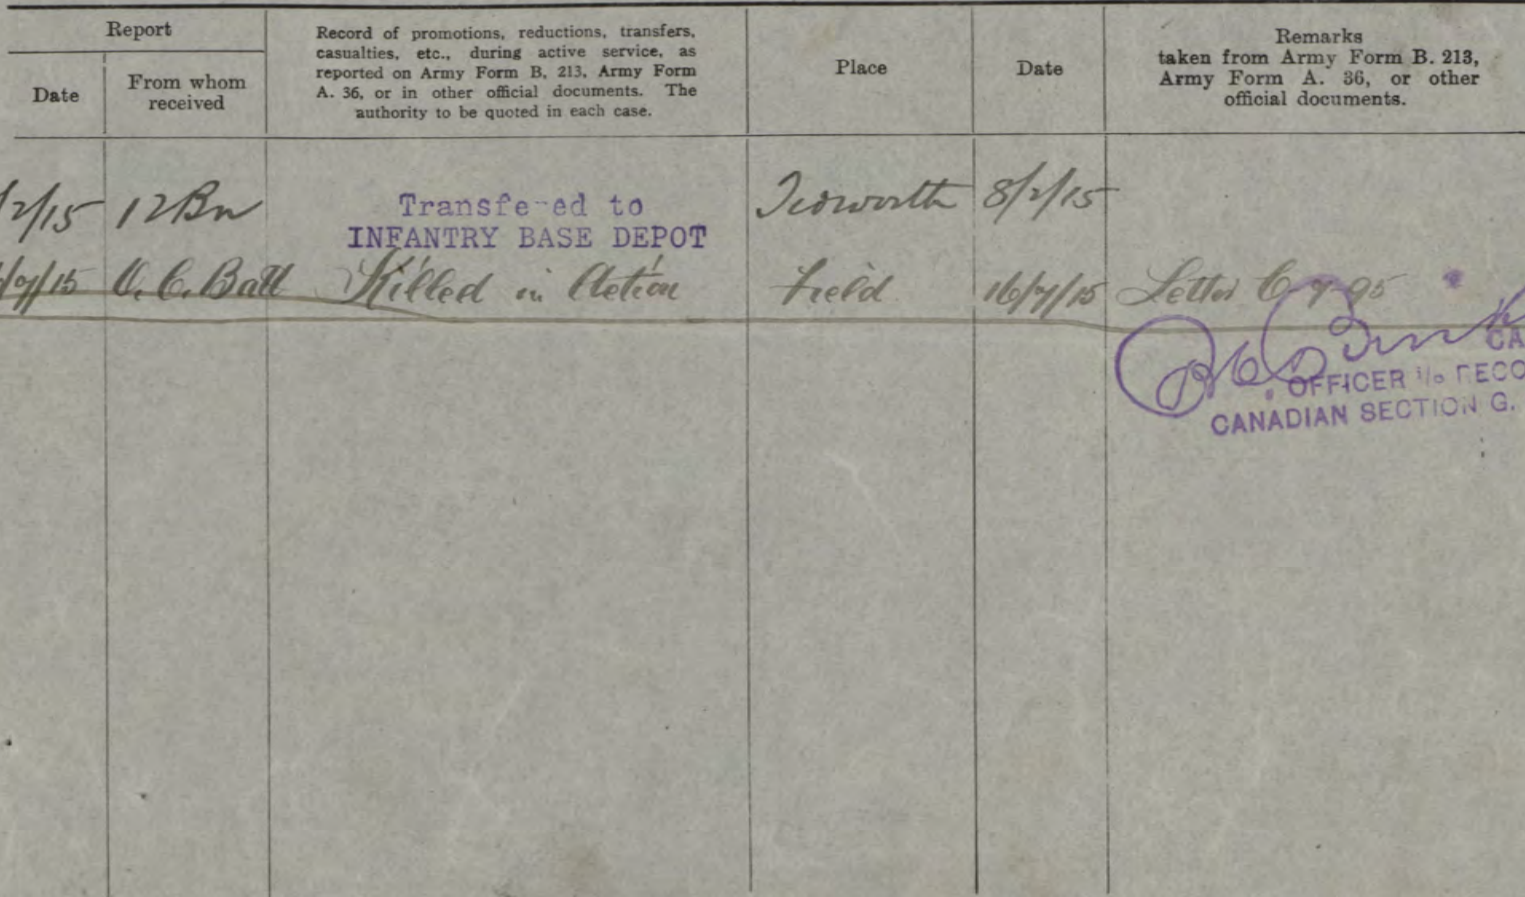 Report
Date
From whom
received
Record of promotions, reductions, transfers,
casualties, etc., during active service, as
reported on Army Form B. 213, Army Form
A. 36, or in other official documents. The
authority to be quoted in each case.
Place
Date
Remarks
taken from Army Form B. 213,
Army Form A. 36, or other
official documents.
/2/15 12 Bn Transfered to Tidworth 8/2/15
INFANTRY BASE DEPOT
/7/15 O.C. Batt Killed in Action Field 16/7/15 Letter C 7-95
CA
OFFICER i/c RECO
CANADIAN SECTION G.